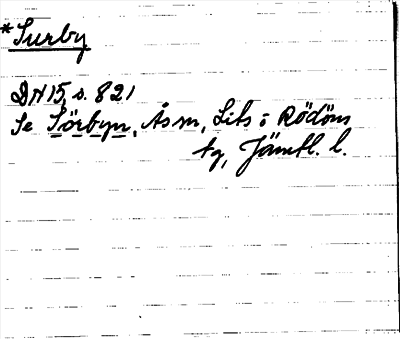 *Surby
DN 15, s. 821
Se Sörbyn, Ås sn, Lits o Rödöns
tg, Jämtl. l.